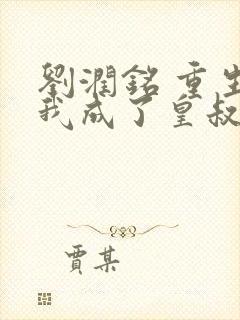 劉潤銘 重生
我成了皇叔
賈某